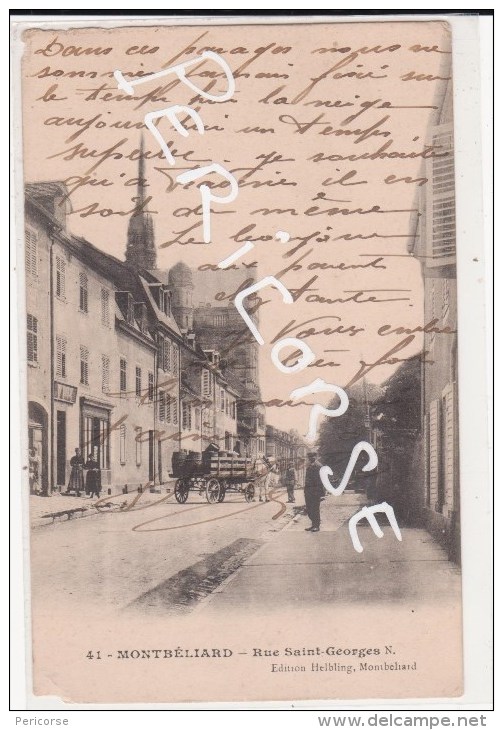 Dans ces parages nous ne
sommes jamais fixé sur
le temps hier la neige
aujourd'hui un temps
superbe. Je souhaite
qu'à Vesoul il en
soit de même
Le bonjour
aux parents
et tante
Vous embrasse
bien fort
PERicorse
41 - MONTBÉLIARD - Rue Saint-Georges N.
Edition Helbling, Montbéliard
Pericorse
http://www.delcampe.net